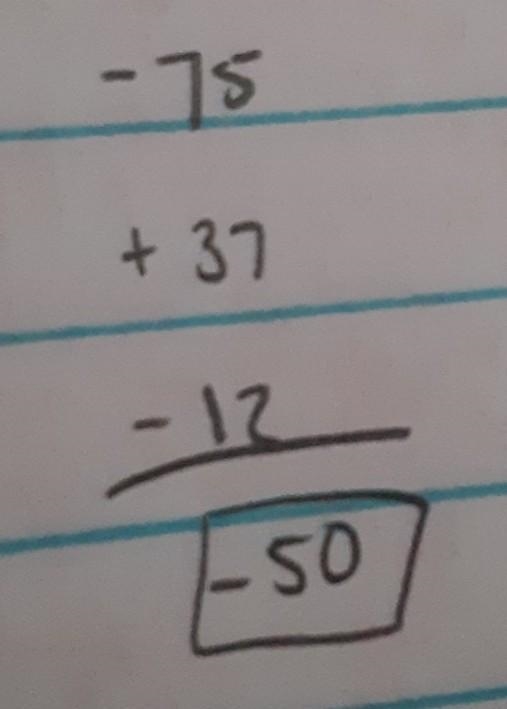 -75
+ 37
-12
-50